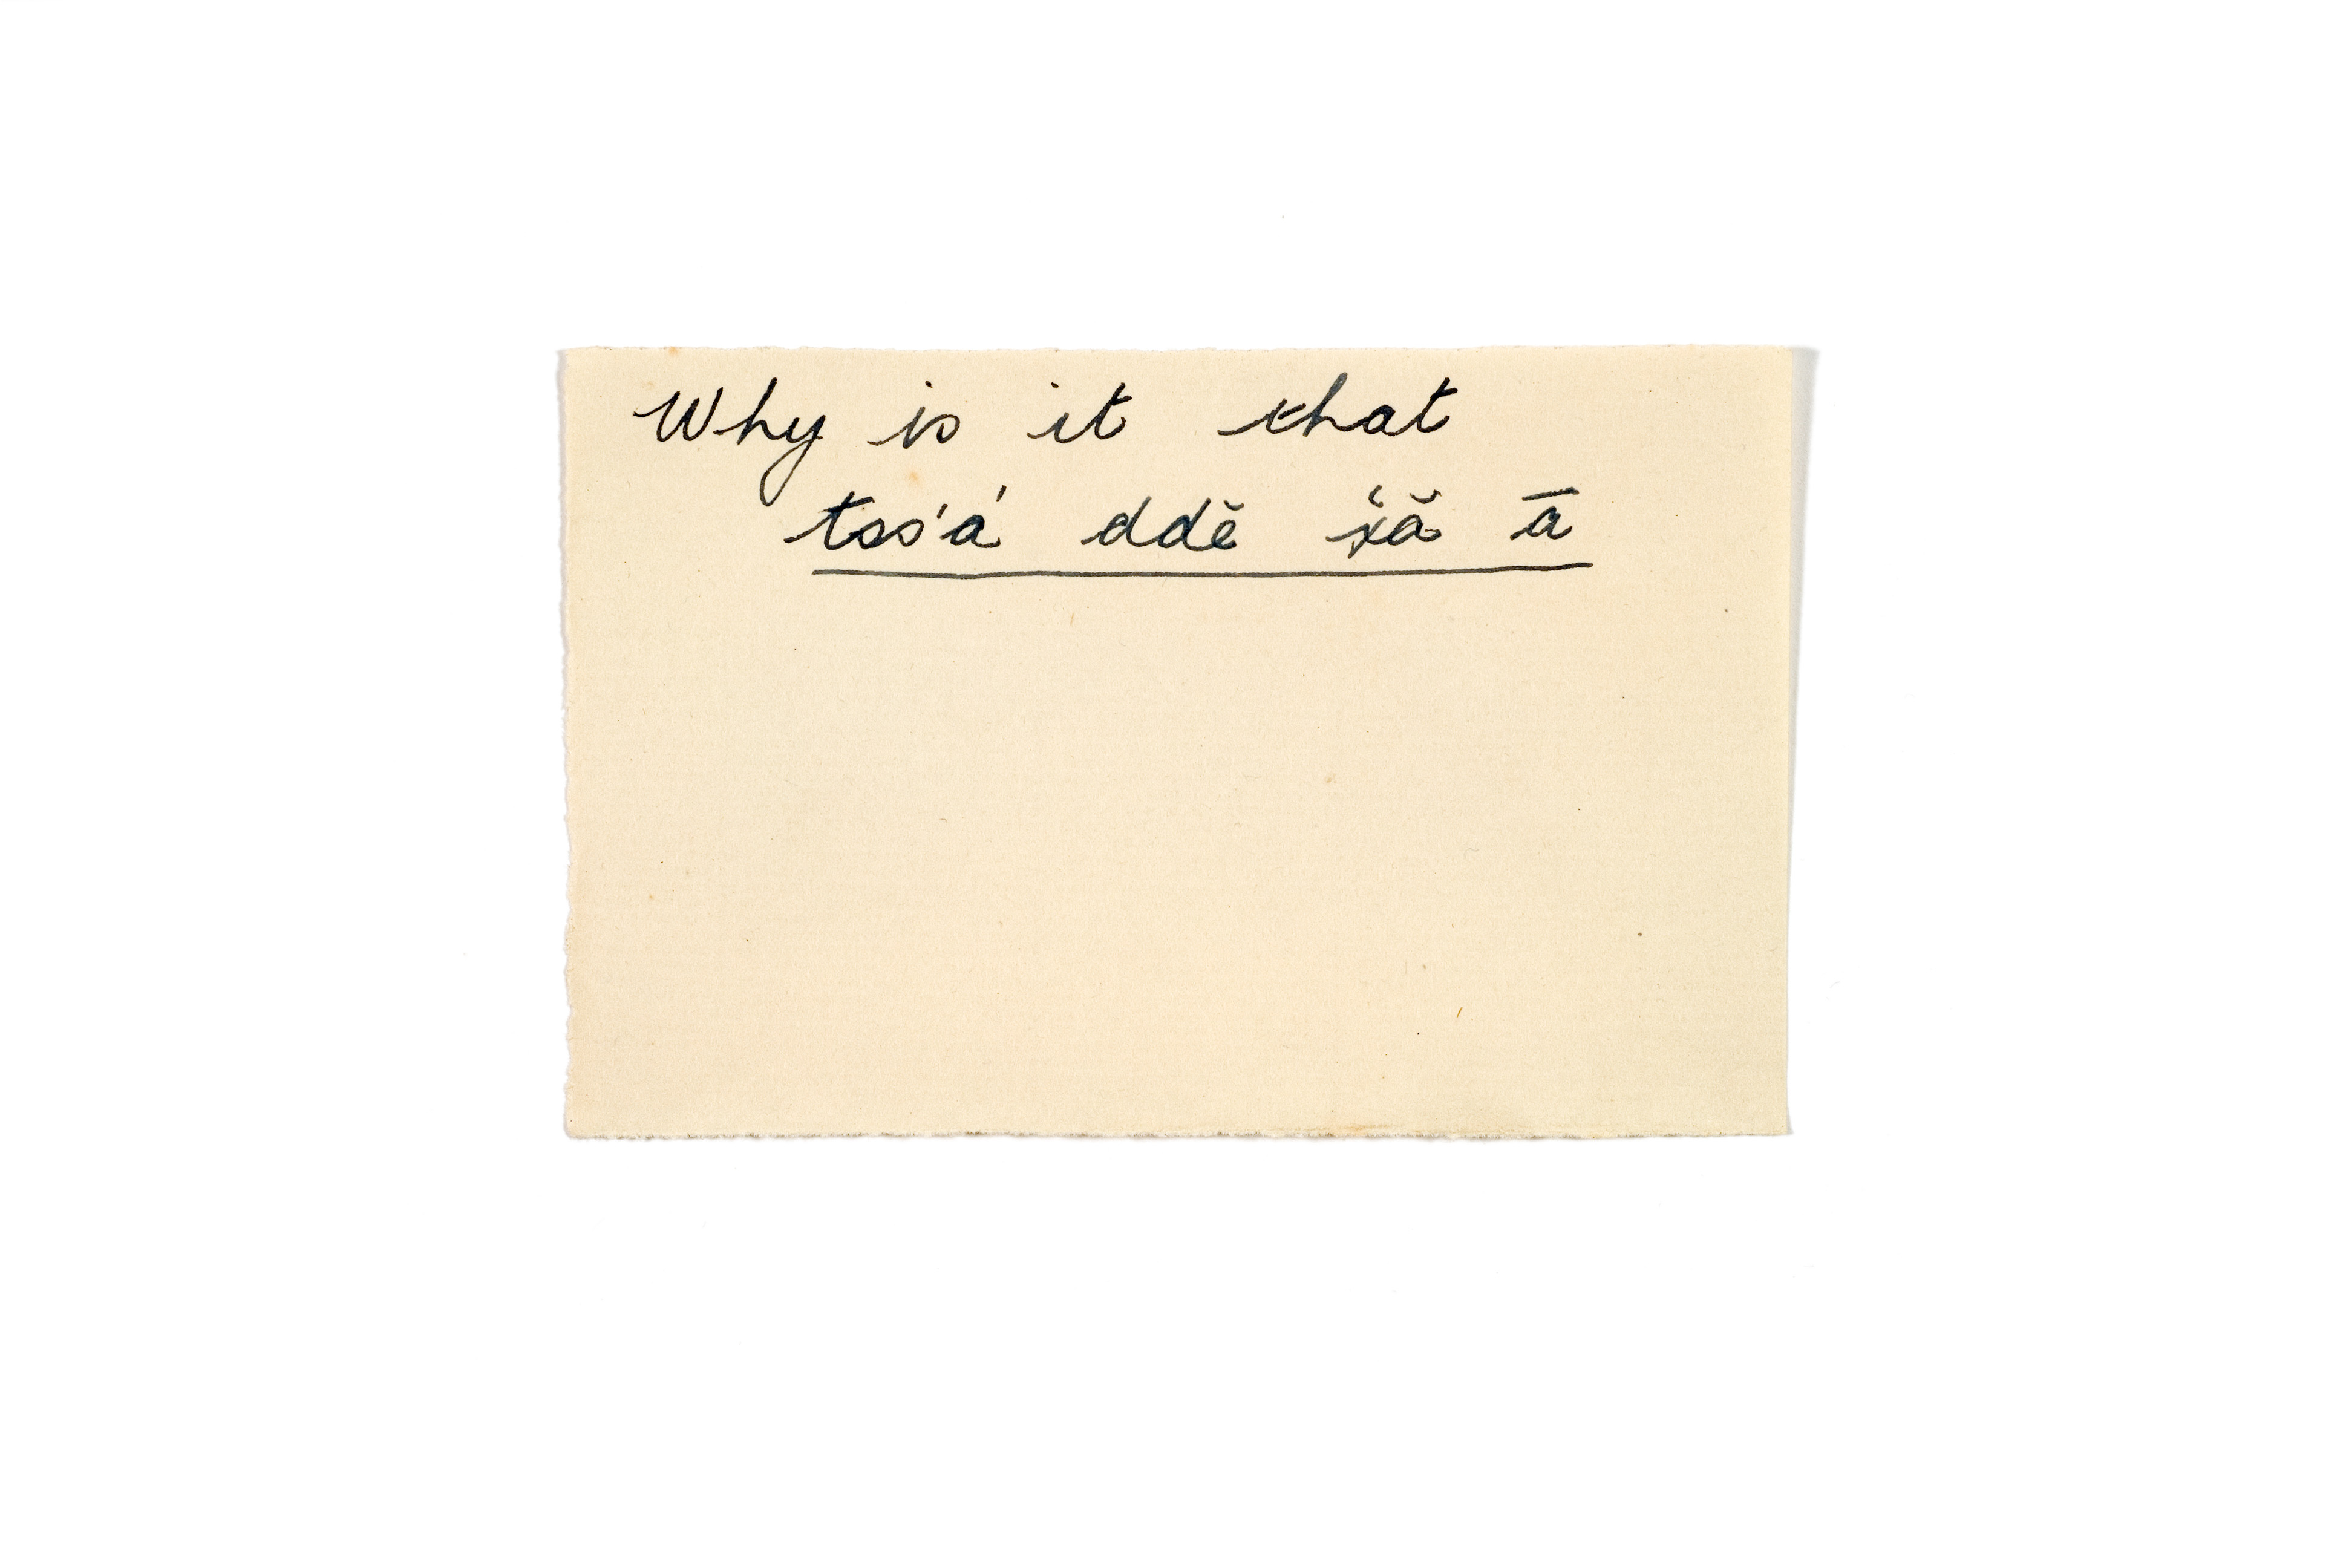 Why is it that
tss'á ddĕ x̌ă ā